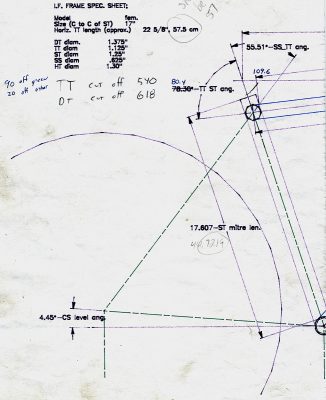 I.F. FRAME SPEC. SHEET;
Model fem.
Size (C to C of ST) 17"
Horiz. TT length (approx.) 22 5/8", 57.5 cm
57
DT diam 1.375"
TT diam. 1.125"
ST diam 1.25"
SS diam .625"
HT diam. 1.30"
90 off green
20 off other
TT cut off 540
DT cut off 618
55.51°-SS_TT ang.
109.6
80.4
78.30°-TT ST ang.
17.607-ST mitre len.
4.45°-CS level ang.